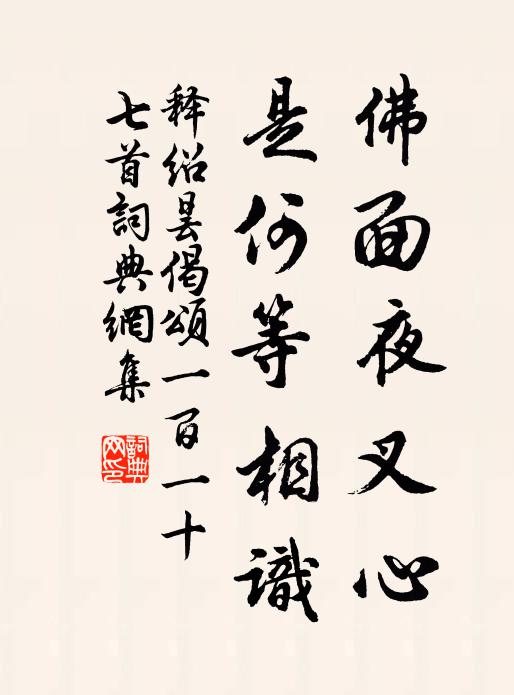 佛面夜叉心
是何等相識
释绍昙偈頌一百一十
七首詞典網集
詞典
网印